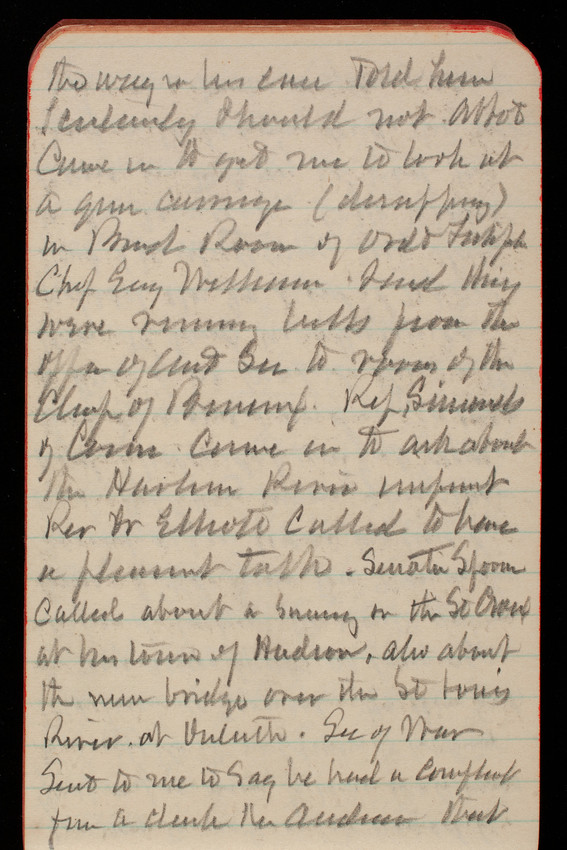 the way in his case told him
I certainly should not. Abbot
Came in to get me to look at
a gun carriage (disapping)
in Brd Room of Ordo
Chf Eng Wellman said they
were running bells from the
offe of and Sec to rooms of the
Chief of Bureaux. Rep, Simonds
of Conn Came in to ask about
the Harlem River
Rev Dr Elliott Called to have
a pleasant talk. Senator Spoon
Called about a survey on the St Croix
at his town of Hudson, also about
the new bridge over the St Louis
River. at Duluth. Sec of War
Sent to me to Say he had a complnt
from a clerk Mr that